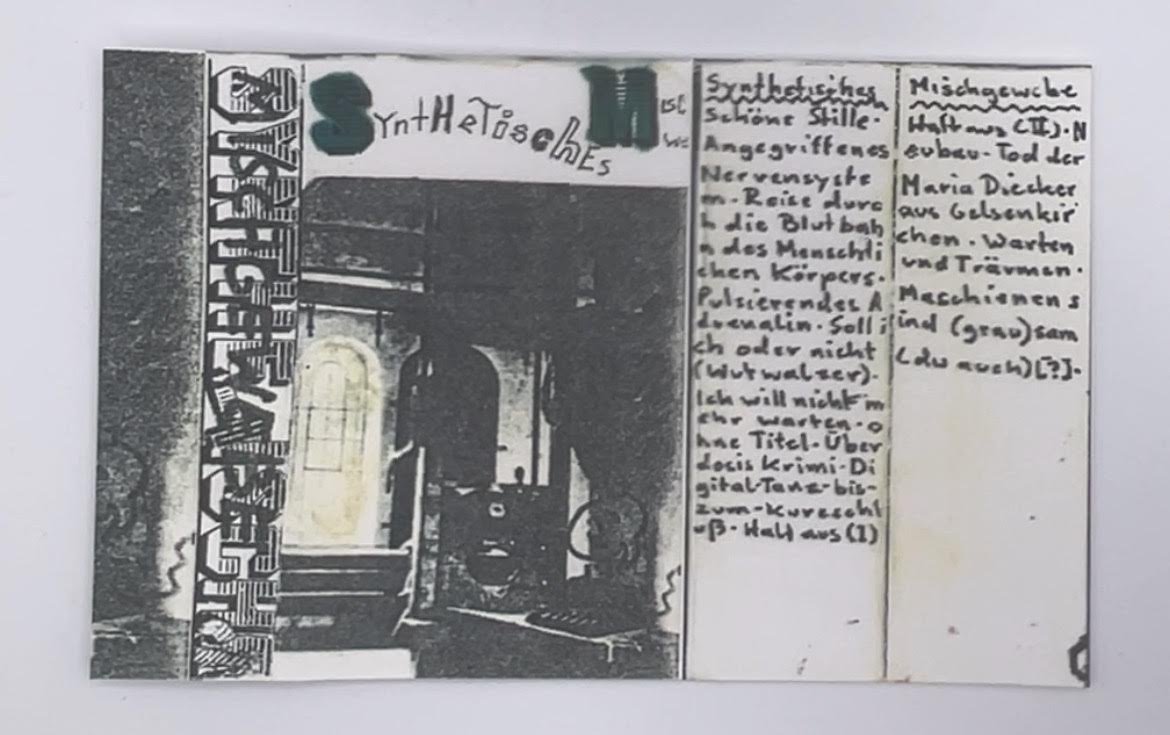 SYNTHETISCHES MISC
WE
SYNTHETISCHES
MISCHGEWEBE
Synthetisches
Schöne Stille·
Angegriffenes
Nervensyste
m·Reise durc
h die Blutbah
n des Menschli
chen Körpers·
Pulsierendes A
drenalin·Soll i
ch oder nicht
(Wutwalzer)·
Ich will nicht m
ehr warten·o
hne Titel·Über
dosis Krimi·Di
gital-Tanz-bis-
zum-Kurzschl
uß·Halt aus (I)
Mischgewebe
Halt aus (II)·N
eubau-Tod der
Maria Diecker
aus Gelsenkir
chen·Warten
und Träumen·
Maschienen s
ind (grau)sam
(du auch)[?]·